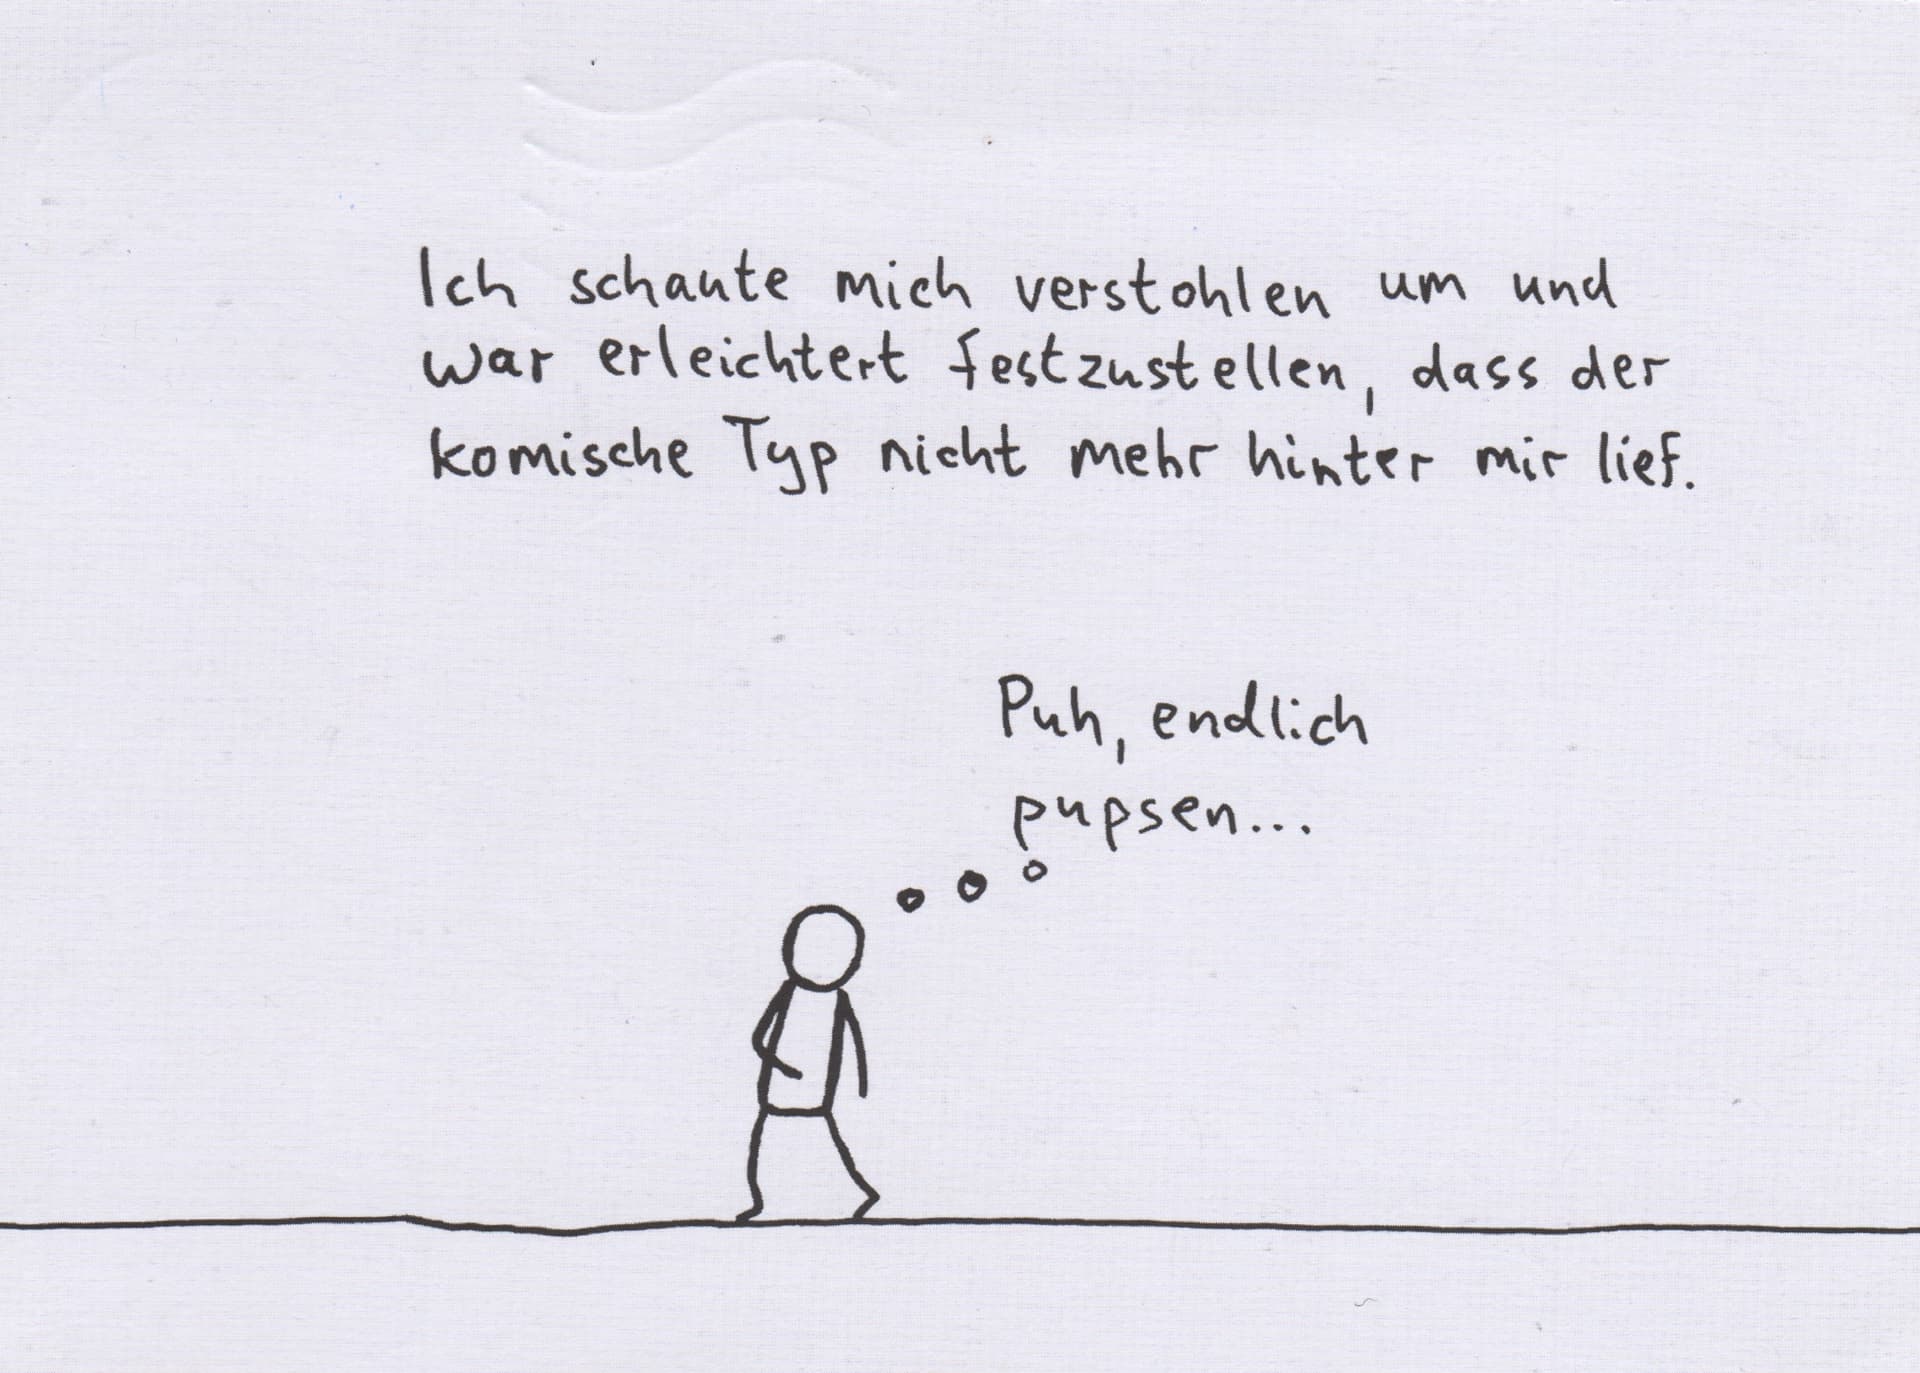 Ich schaute mich verstohlen um und
war erleichtert festzustellen, dass der
komische Typ nicht mehr hinter mir lief.
Puh, endlich
pupsen...